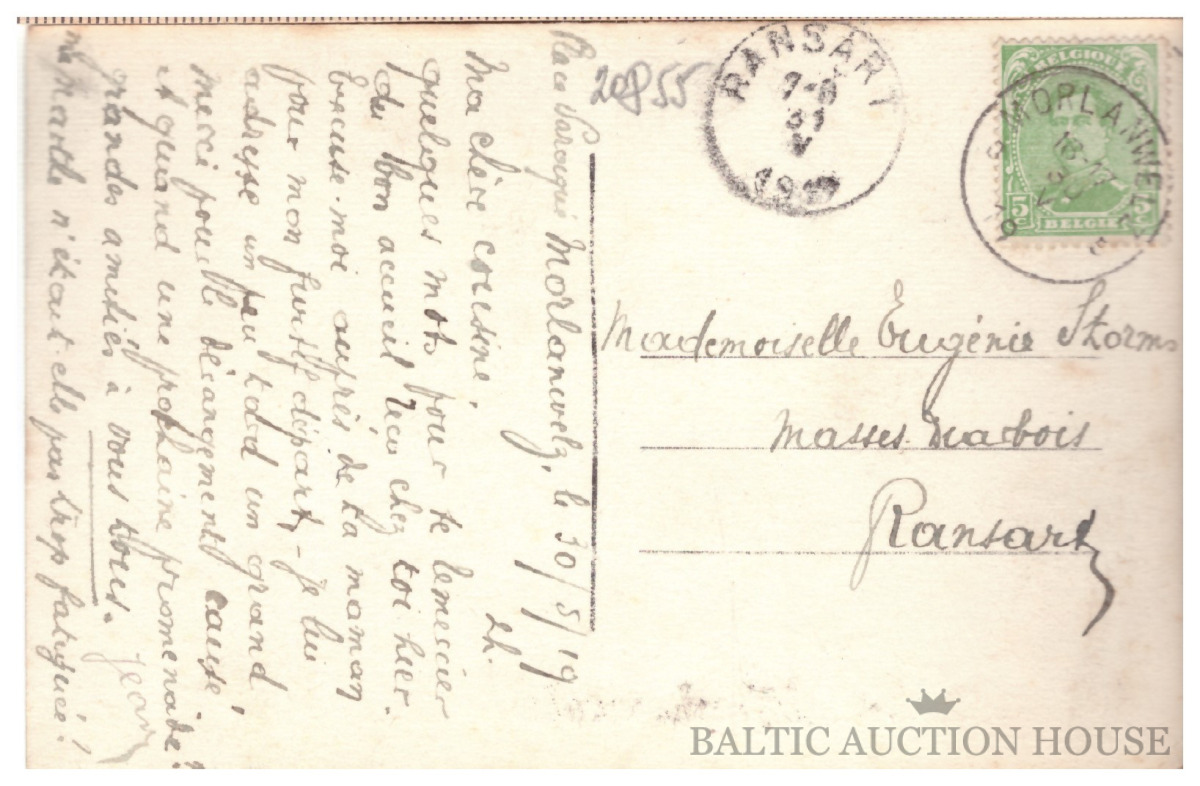 Place Warocqué Morlanwelz, le 30/5/19
2h.
Ma chère cousine,
quelques mots pour te remercier
du bon accueil reçu chez toi hier.
Excuse-moi auprès de ta maman
pour mon furtif départ, - je lui
adresse un peu tard un grand
merci pour le dérangement causé;
et quand une prochaine promenade?
grandes amitiés à vous tous.
Jean
Marthe n'était-elle pas trop fatiguée!
20855
RANSART
7-8
31
V
19
BELGIQUE
MORLANWELZ
V
5
BELGIË
Mademoiselle Eugénie Storms
Masses Diarbois
Ransart
BALTIC AUCTION HOUSE